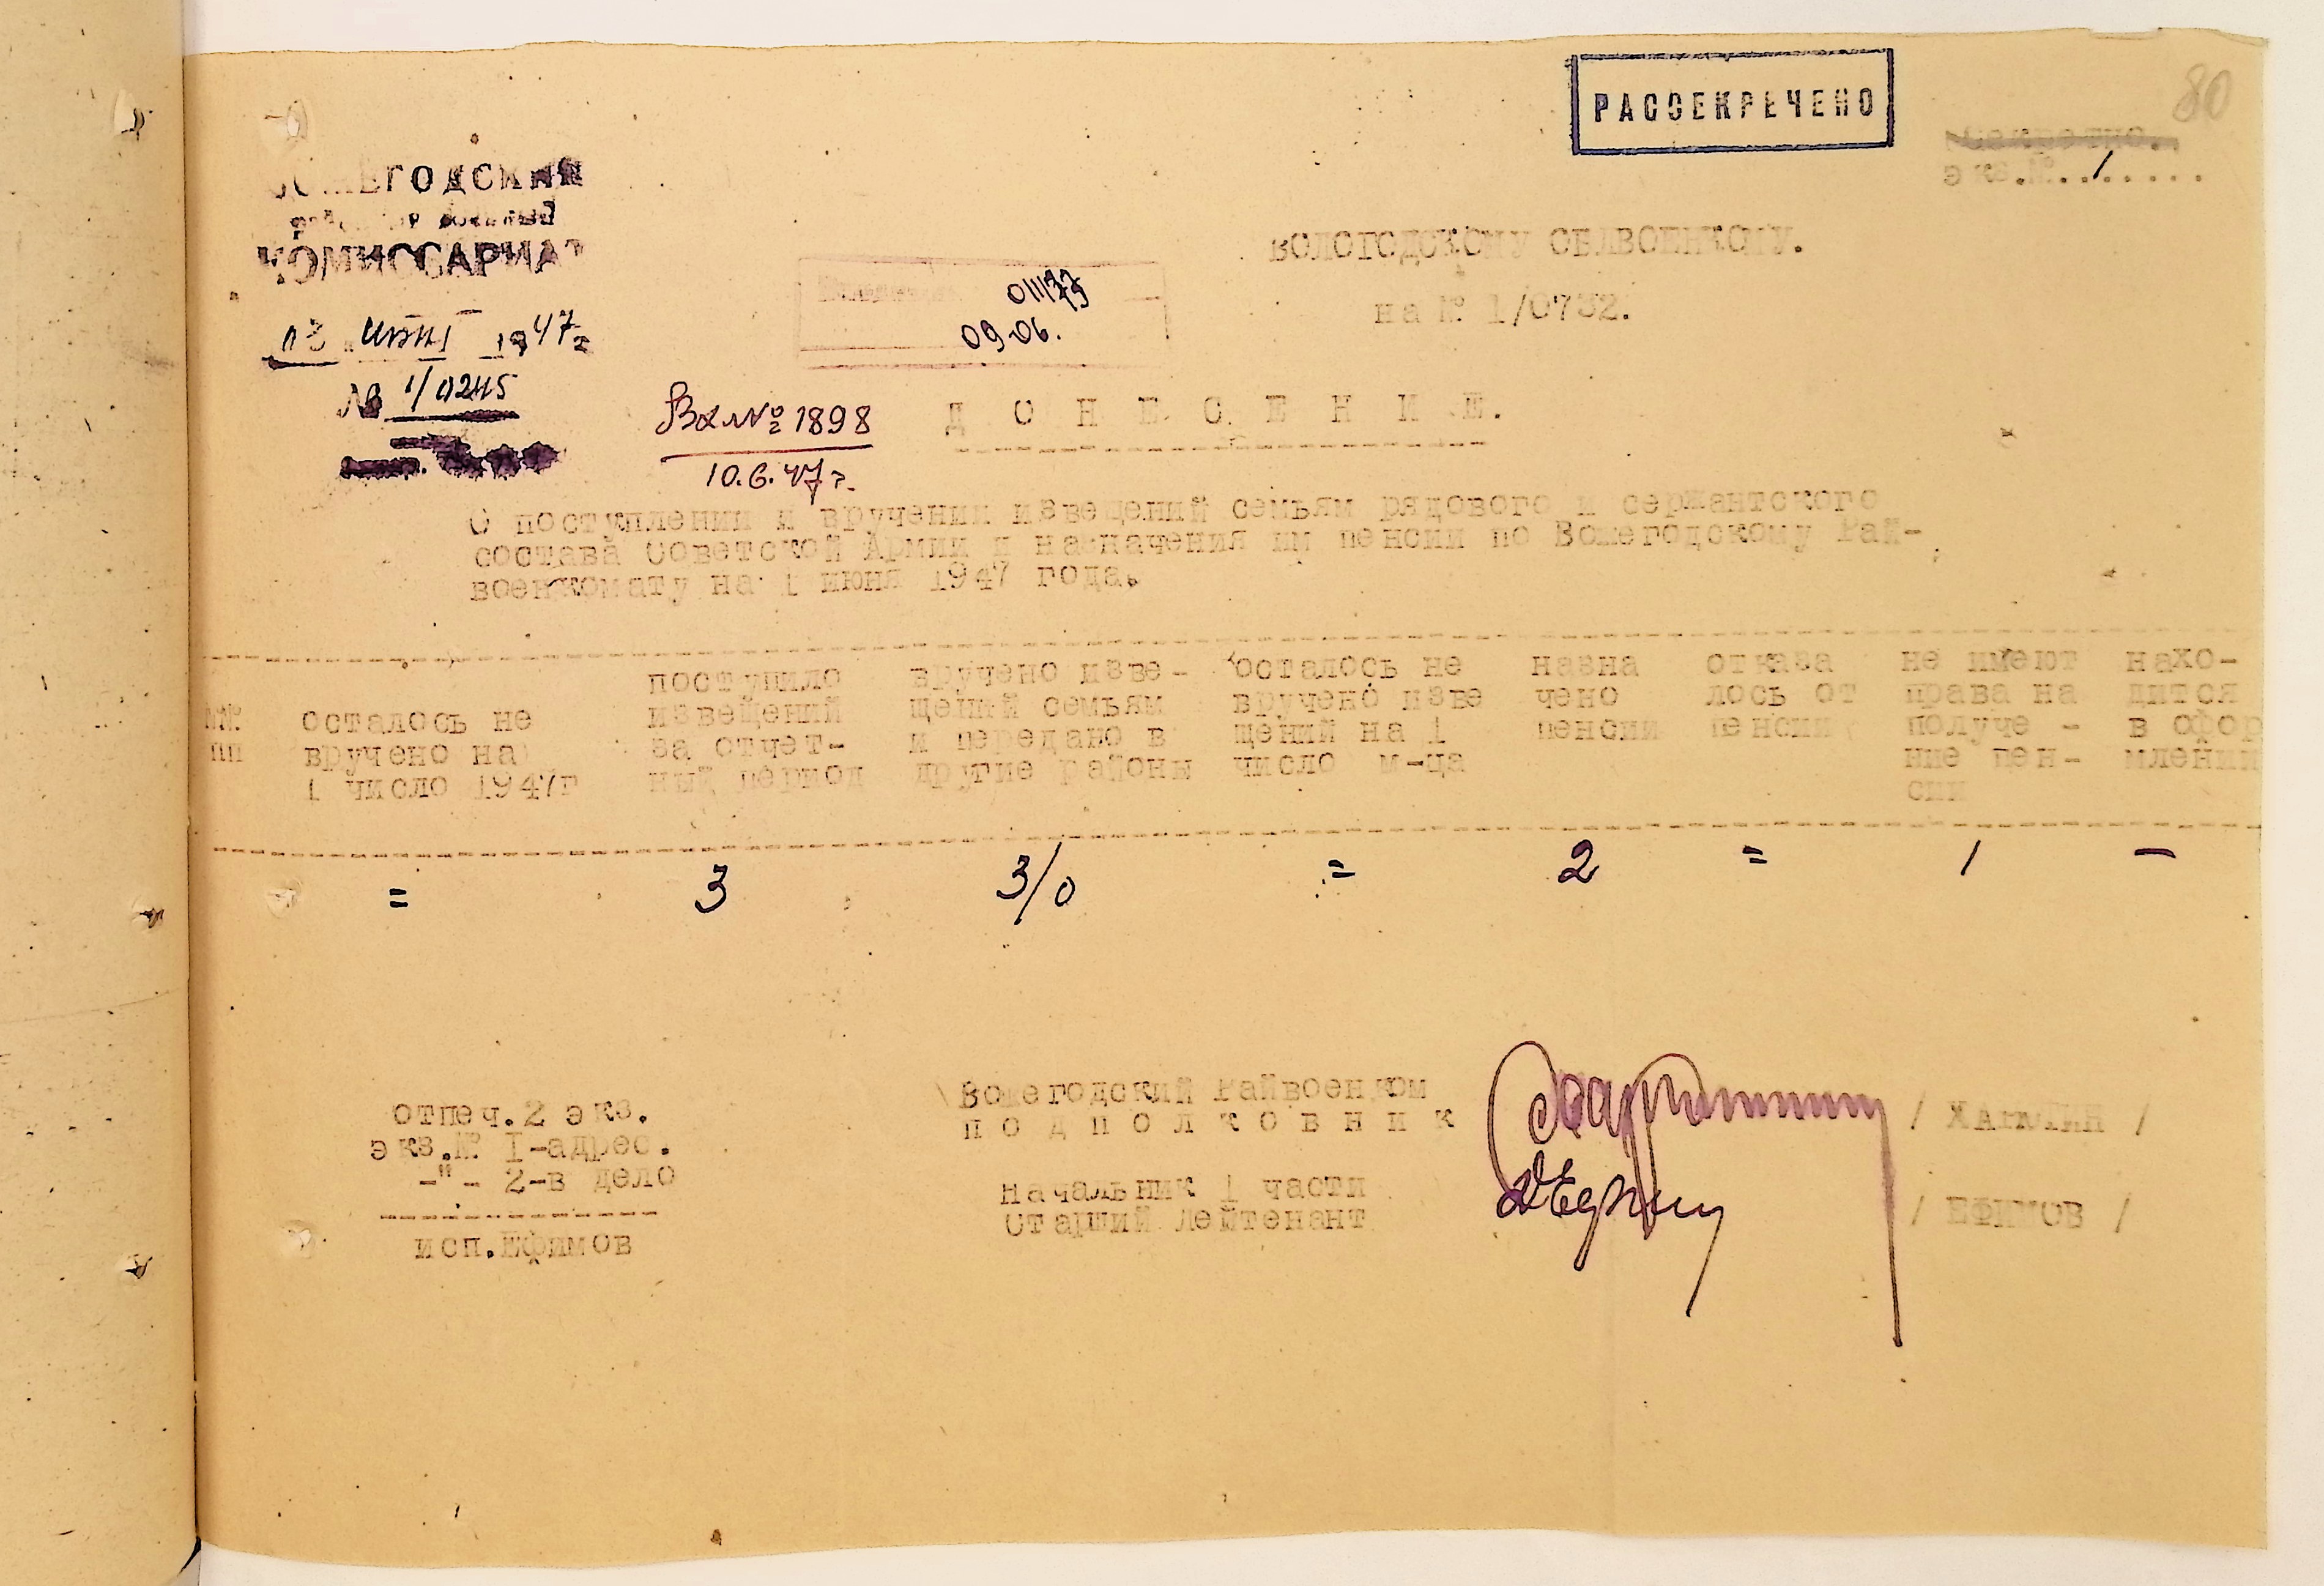 РАССЕКРЕЧЕНО
80
Секретно.
экз.№..1......
ВОЖЕГОДСКИЙ
КОМИССАРИАТ
03 июня 1947г
№ 1/0245
01173
09.06.
Вх № 1898
10.6.47 г.
ВОЛОГОДСКОМУ ОБЛВОЕНКОМУ.
на № 1/0732.
Д О Н Е С Е Н И Е.
О поступлении и вручении извещений семьям рядового и сержантского
состава Советской Армии и назначения им пенсии по Вожегодскому Рай-
военкомату на 1 июня 1947 года.
№№ пп
осталось не
вручено на
1 число 1947г
поступило
извещений
за отчет-
ный период
вручено изве-
щений семьям
и передано в
другие районы
осталось не
вручено изве
щений на 1
число м-ца
назна
чено
пенсии
отказа
лось от
пенсии
не имеют
права на
получе -
ние пен-
сии
нахо-
дится
в офор
млении
= 3 3/0 = 2 = 1 –
Вожегодский Райвоенком
п о д п о л к о в н и к / ХАРЮТИН /
Начальник 1 части
Старший лейтенант / ЕФИМОВ /
отпеч.2 экз.
экз.№ I-адрес.
-"- 2-в дело
исп.Ефимов